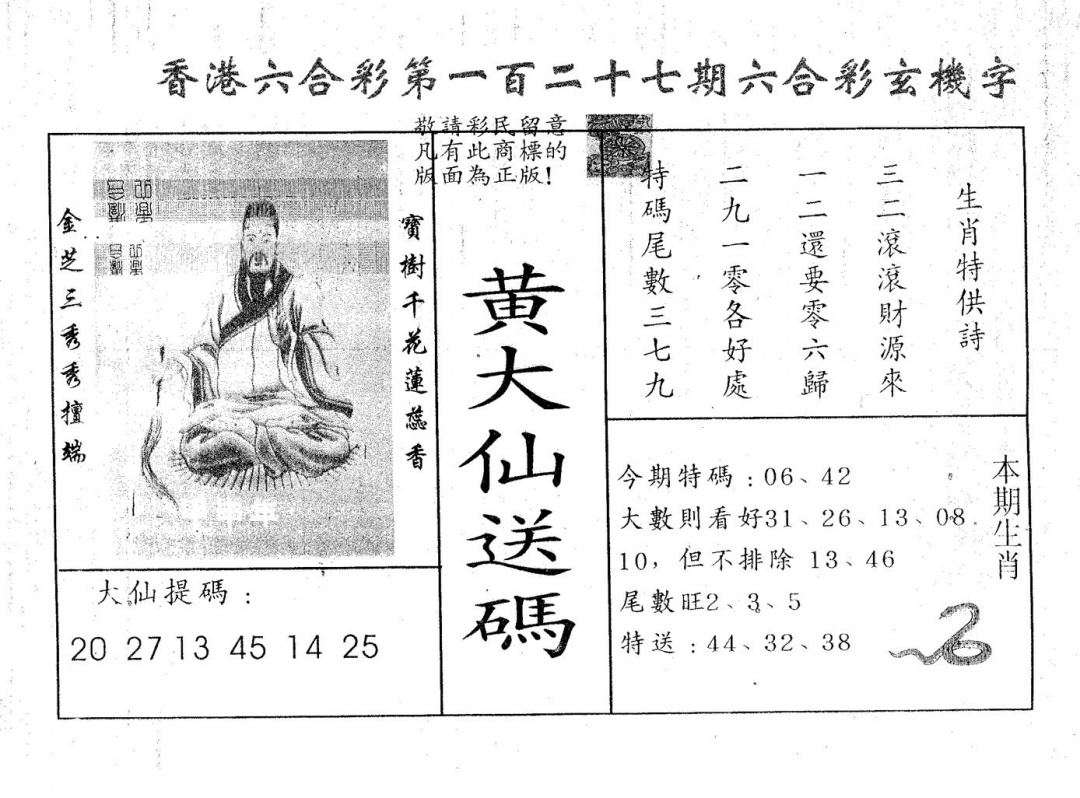 香港六合彩第一百二十七期六合彩玄機字
敬請彩民留意
凡有此商標的
版面為正版!
生肖特供詩
三二滾滾財源來
一二還要零六歸
二九一零各好處
特碼尾數三七九
寶樹千花蓮蕊香
金芝三秀秀擅端
黃大仙送碼
大仙提碼:
20 27 13 45 14 25
本期生肖
今期特碼:06、42
大數則看好31、26、13、08
10,但不排除 13、46
尾數旺2、3、5
特送:44、32、38